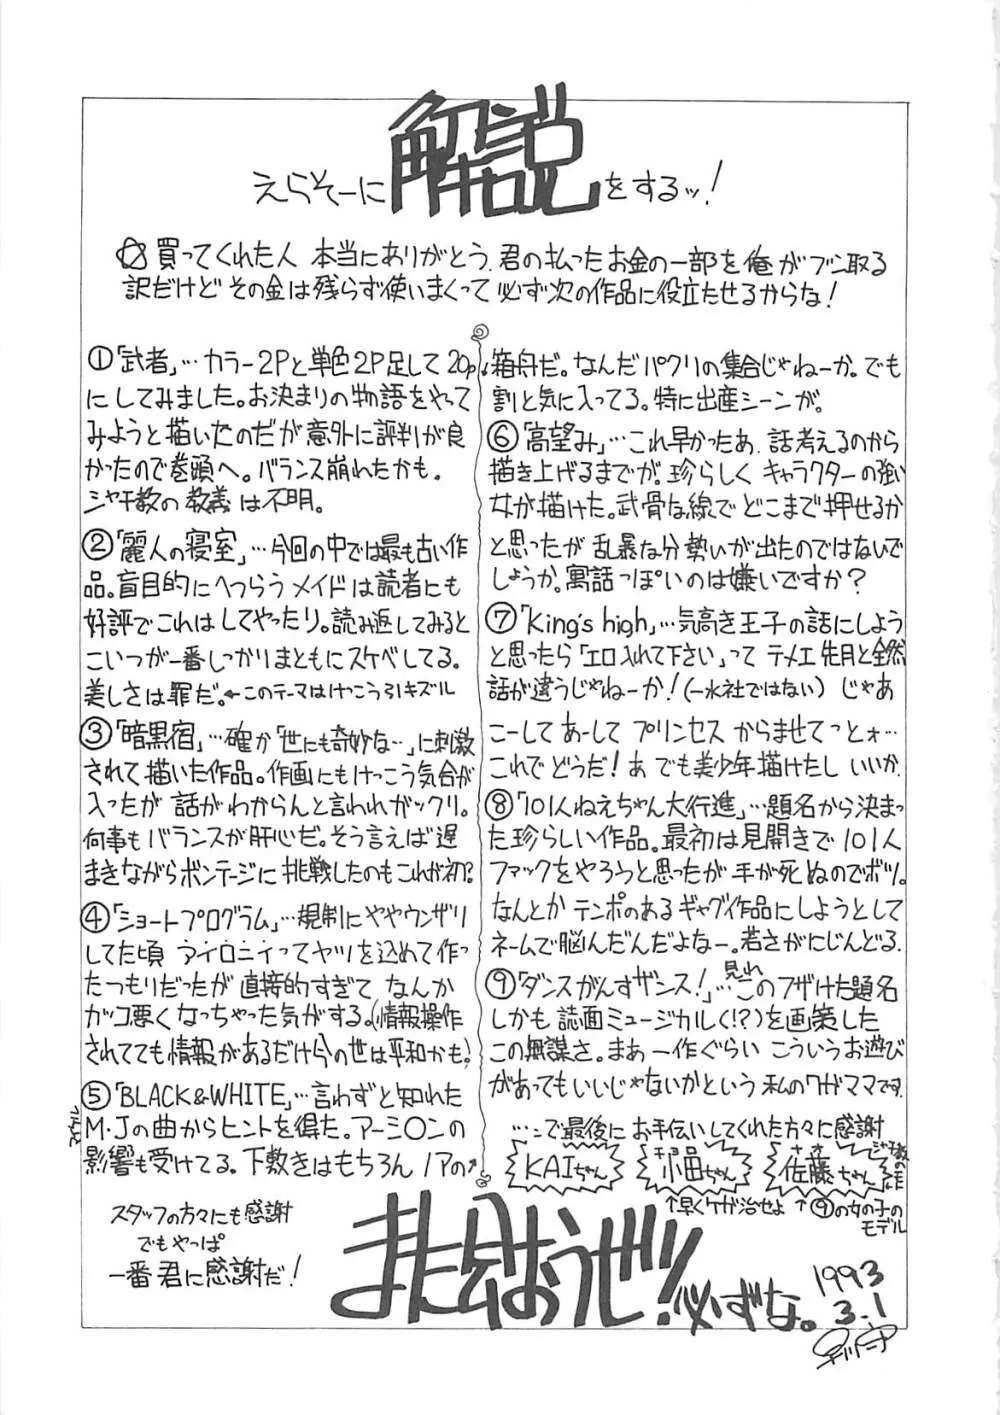 えらそーに解説をするッ！
☆買ってくれた人 本当にありがとう。君の払ったお金の一部を俺がブン取る
訳だけど その金は残らず使いまくって 必ず次の作品に役立たせるからな！
①「武者」…カラー2Pと単色2P足して20p
にしてみました。お決まりの物語をやって
みようと描いたのだが意外に評判が良
かったので巻頭へ。バランス崩れたかも。
シャチ教の教義は不明。
②「麗人の寝室」…今回の中では最も古い作
品。盲目的にへつらうメイドは読者にも
好評でこれはしてやったり。読み返してみると
こいつが一番しっかりまともにスケベしてる。
美しさは罪だ。←このテーマはけっこう引キズル
③「暗黒宿」…確か「世にも奇妙な…」に刺激
されて描いた作品。作画にもけっこう気合が
入ったが 話がわからんと言われガックリ。
何事もバランスが肝心だ。そう言えば遅
まきながらボンテージに挑戦したのもこれが初?
④「ショートプログラム」…規制にややウンザリ
してた頃 アイロニイってヤツを込めて作っ
たつもりだったが 直接的すぎて なんか
ガッコ悪くなっちゃった気がする。(情報操作
されてても情報があるだけ今の世は平和かも)
⑤「BLACK&WHITE」…言わずと知れた
M・Jの曲からヒントを得た。アーミ〇ンの
影響も受けてる。下敷きはもちろん ノアの↗
↓箱舟だ。なんだパクリの集合じゃねーか。でも
割と気に入ってる。特に出産シーンが。
⑥「高望み」…これ早かったあ。話考えるのから
描き上げるまでが。珍らしく キャラクターの強い
女が描けた。武骨な線で どこまで押せるか
と思ったが 乱暴な分 勢いが出たのではないで
しょうか。寓話っぽいのは嫌いですか？
⑦「King's high」…気高き王子の話にしよう
と思ったら「エロ入れて下さい」って テメエ先月と全然
話が違うじゃねーか！(一水社ではない) じゃあ
こーして あーして プリンセス からませてっとォ…
これで どうだ！あ でも美少年描けたし いいか。
⑧「101人ねえちゃん大行進」…題名から決まっ
た珍らしい作品。最初は見開きで101人
ファックをやろうと思ったが 手が死ぬのでボツ。
なんとか テンポのある ギャグ作品にしようとして
ネームで脳んだんだよなー。若さがにじんどる。
⑨「ダンスがんすザンス！」…見れこのフザけた題名
しかも 誌面ミュージカル(!?)を画策した
この無謀さ。まあ 一作ぐらい こういうお遊び
があってもいいじゃないかという 私のワガママです。
…ンで最後に お手伝いしてくれた方々に感謝
KAIちゃん
小田ちゃん
佐藤ちゃん
↑早くケガ治せよ
↑⑨の女の子の
モデル
スタッフの方々にも感謝
でもやっぱ
一番君に感謝だ！
また会おうぜ!!必ずな。
1993
3.1